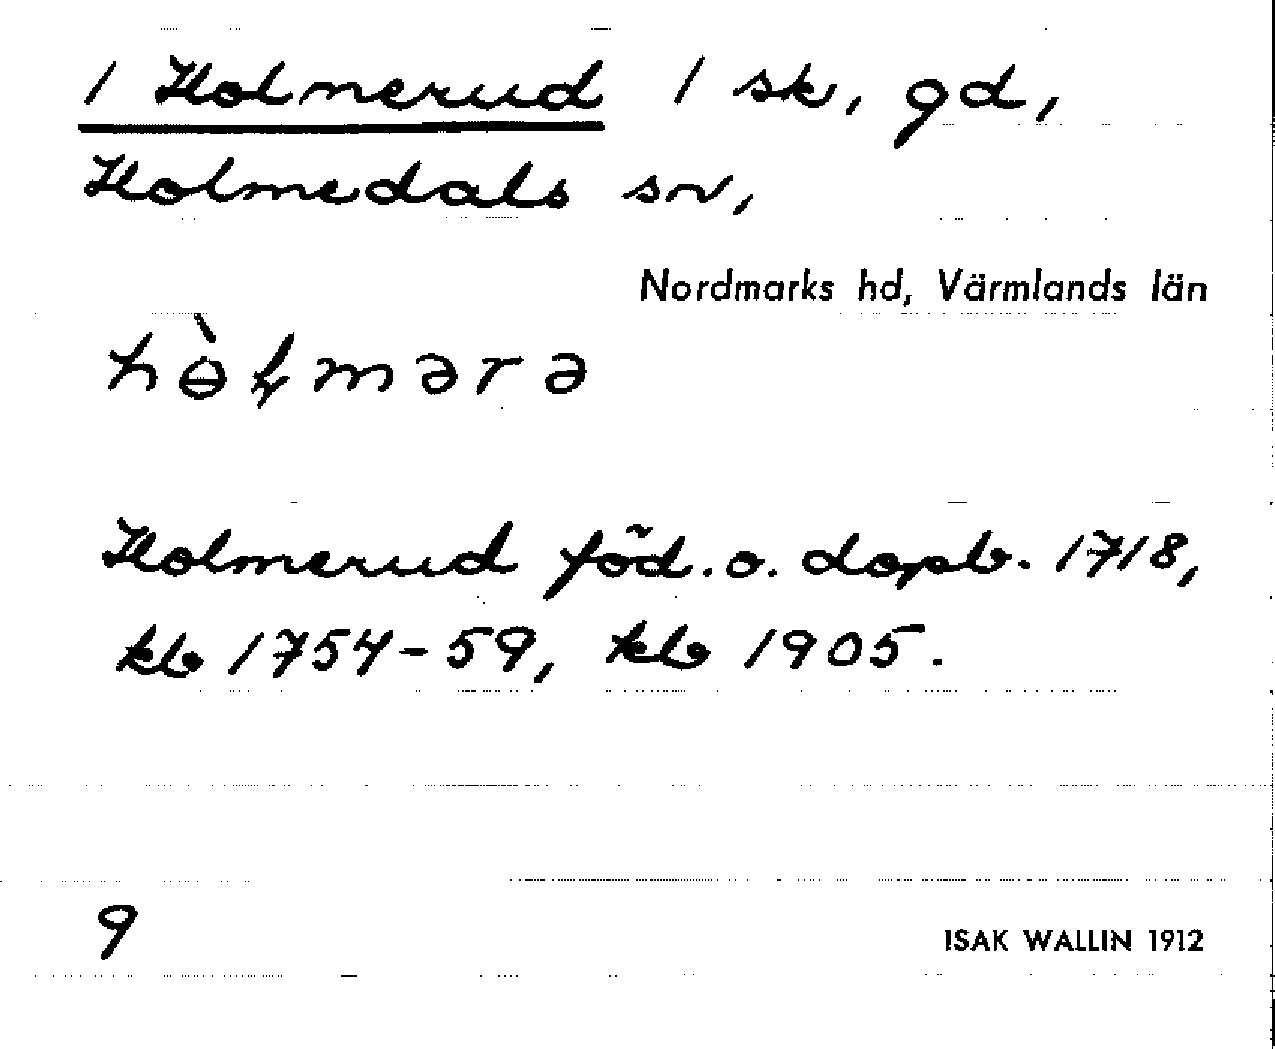 1 Holmerud 1 sk, gd,
Holmedals sn,
Nordmarks hd, Värmlands län
hɵ̀ɫmərə
Holmerud föd. o. dopb. 1718,
kb 1754-59, kb 1905.
9
ISAK WALLIN 1912